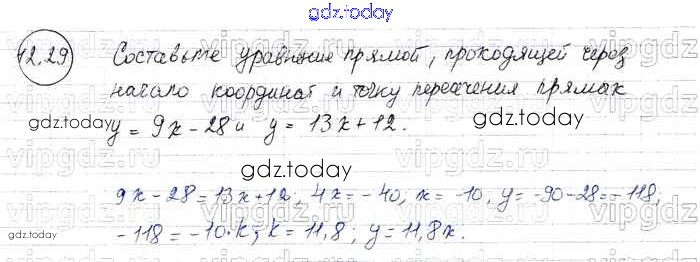 gdz.today
12.29 Составьте уравнение прямой, проходящей через
начало координат и точку пересечения прямых
gdz.today y = 9x - 28 и y = 13x + 12. gdz.today
gdz.today
9x - 28 = 13x + 12; 4x = -40, x = -10, y = -90 - 28 = -118;
gdz.today -118 = -10·k; k = 11,8; y = 11,8x. gdz.today